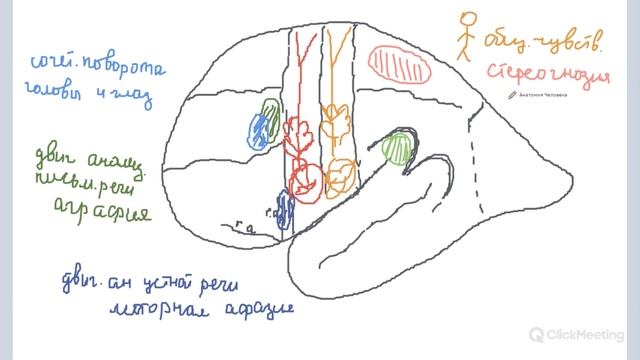 сочет. поворота
головы и глаз
двиг. анализ.
письм. речи
аграфия
двиг. ан устной речи
моторная афазия
общ. чувств.
стереогнозия
Анатомия Человека
r.a
r.a
ClickMeeting